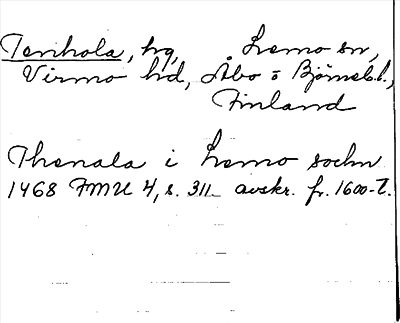 Tenhola, hg, Lemo sn,
Virmo hd, Åbo o Björneb.l.,
Finland
Thenala i Lemo sochn
1468 FMU 4, s. 311 avskr. fr. 1600-t.